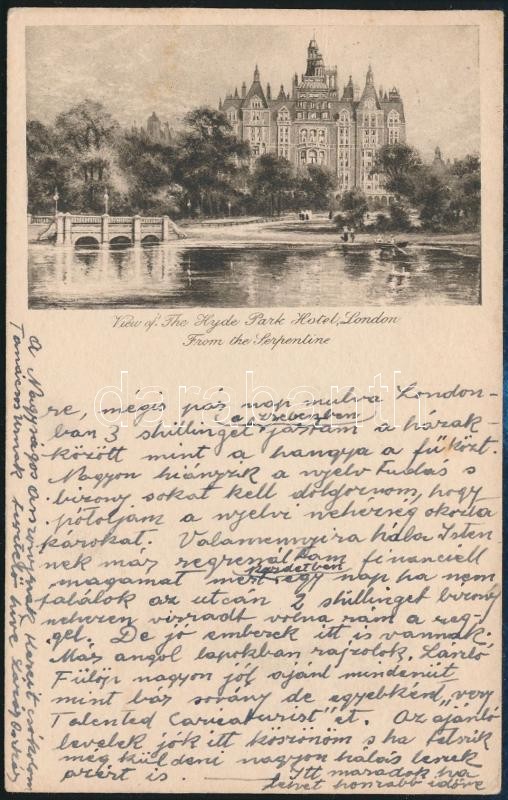 View of The Hyde Park Hotel, London
From the Serpentine
re, mégis pár nap mulva London-
ban 3 shillinget zsebemben jártam a házak-
között mint a hangya a fű közt.
Nagyon hiányzik a nyelv tudás s
bizony sokat kell dolgoznom, hogy
pótoljam a nyelvi nehézség okozta
károkat. Valamennyire hála Isten
nek már financiell
magamat mert kezdetben egy nap ha nem
találok az utcán 2 shillinget bizony
nehezen virradt volna rám a reg-
gel. De jó emberek itt is vannak.
Már angol lapokban rajzolok. László
Fülöp nagyon jól ajánl mindenütt
mint báz sovány de egyebként "very
Talented Caricaturist"-ét. Az ajánló
levelek jók itt köszönöm s ha tetszik
még küldeni nagyon hálás leszek
azért is. Itt maradok ha
lehet hosszabb időre
A Nagyságos Asszonynak kezeit csókolom
Tanácsos Urnak tiszteletteli híve
darabanth